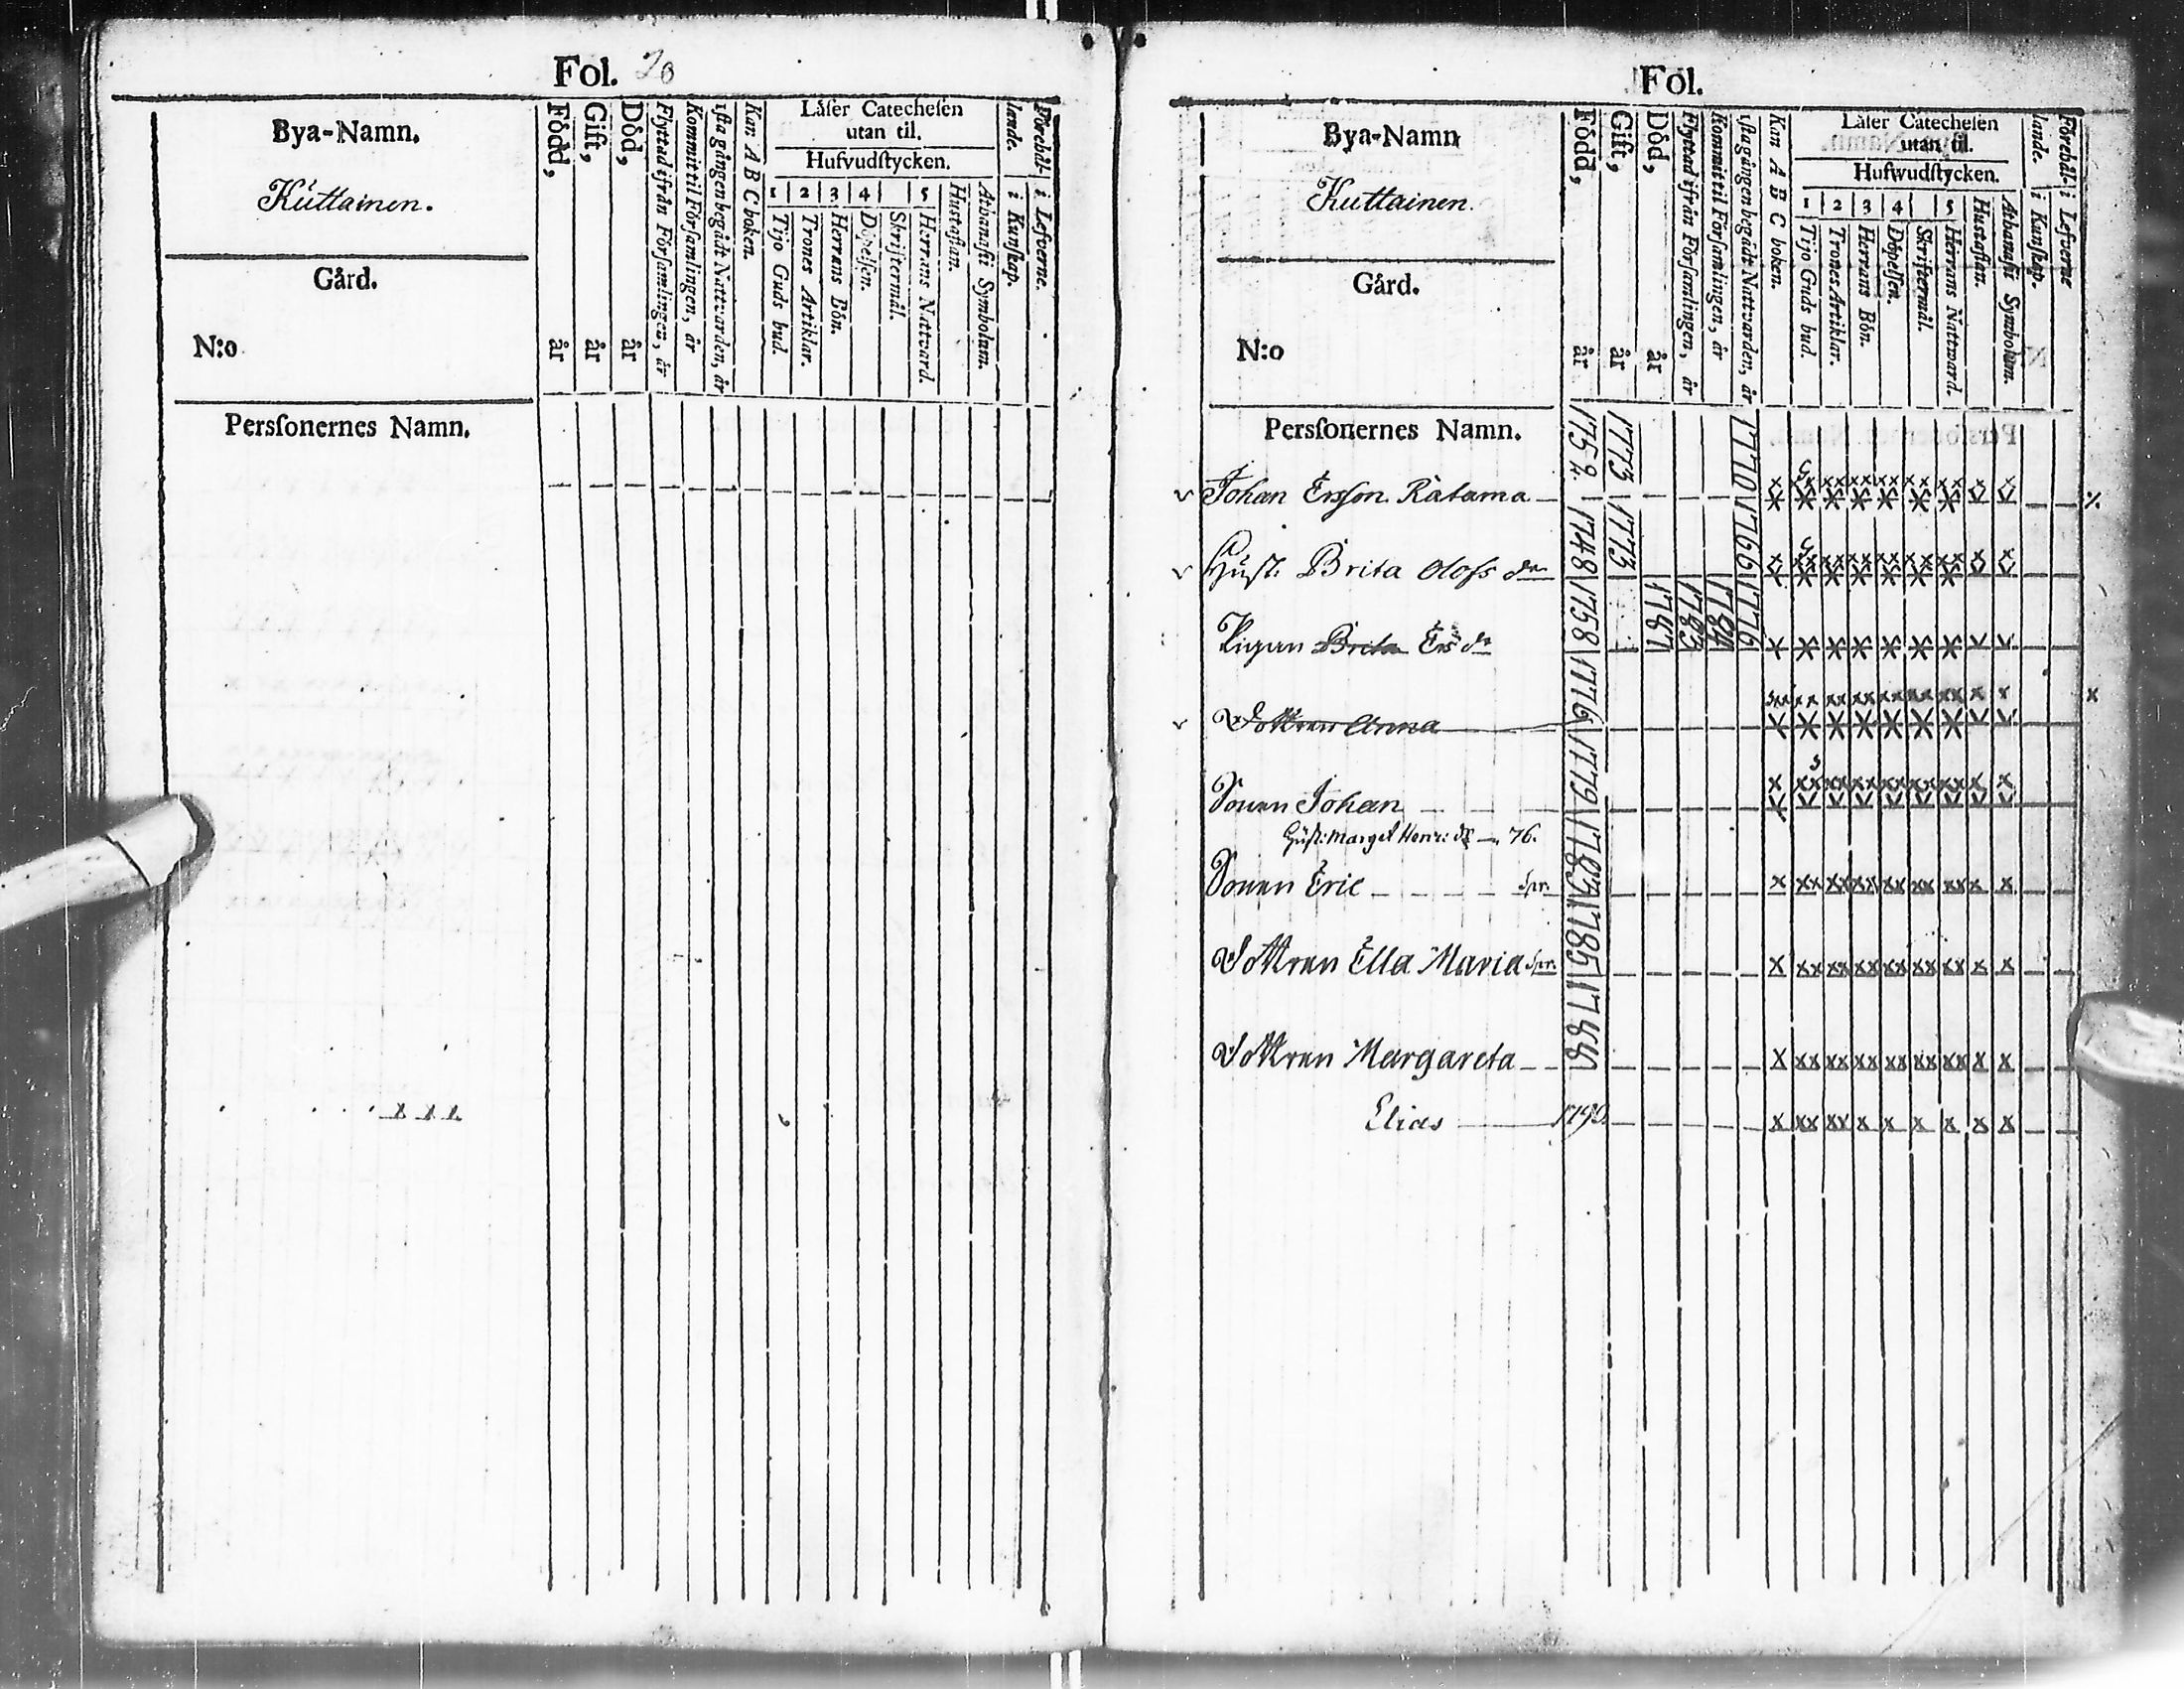 Fol. 20
Bya-Namn.
Kuttainen.
Gård.
N:o
Persſonernes Namn.
Född, år
Gift, år
Död, år
Flyttad ifrån Förſamlingen, år
Kommit til Förſamlingen, år
1ſta gången begådt Nattvarden, år
Kan A B C boken.
Läſer Catecheſen
utan til.
Hufvudſtycken.
1 2 3 4 5
Tijo Guds bud.
Trones Artiklar.
Herrans Bön.
Döpelſen.
Skriftermål.
Herrans Nattvard.
Huſtaflan.
Athanaſii Symbolum.
Förebål-
lande.
i Kunſkap.
i Lefverne.
x x x
Fol.
Bya-Namn
Kuttainen.
Gård.
N:o
Persſonernes Namn.
Född, år
Gift, år
Död, år
Flyttad ifrån Förſamlingen, år
Kommit til Förſamlingen, år
1ſta gången begådt Nattvarden, år
Kan A B C boken.
Läſer Catecheſen
utan til.
Hufwudſtycken.
1 2 3 4 5
Tijo Guds bud.
Trones Artiklar.
Herrans Bön.
Döpelſen.
Skriftermål.
Herrans Nattward.
Huſtaflan.
Athanaſii Symbolum.
Förebål-
lande.
i Kunſkap.
i Lefverne
Johan Ersſon Ratama 1752 1773 1770
Huſt. Brita Olofs dr 1748 1773 1766
Pigan Brita Ers dr 1758 1787 1783 1784 1776
Dottren Anna 1776
Sonen Johan 1779
Huſt: Marget Henr: dr 76.
Sonen Eric Spr. 1783
Dottren Ella Maria Spr. 1785
Dottren Margareta 1788
Elias